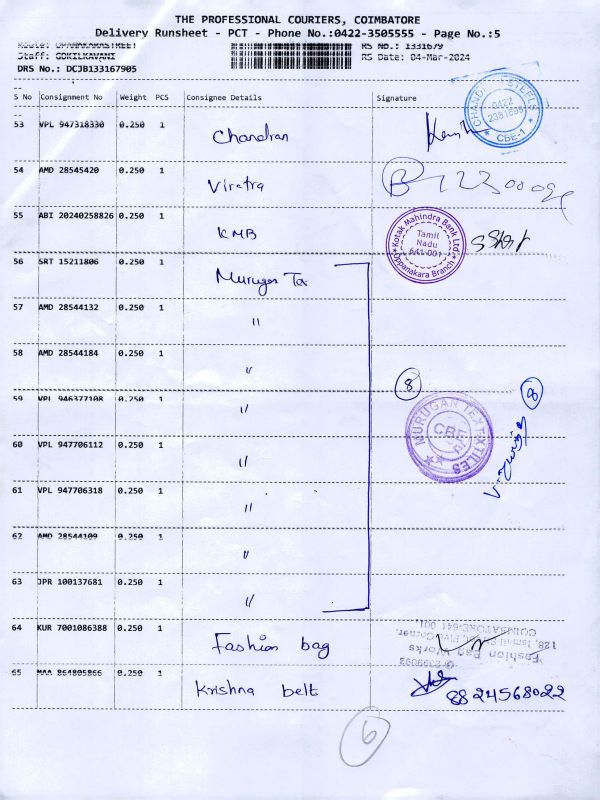 THE PROFESSIONAL COURIERS, COIMBATORE
Delivery Runsheet - PCT - Phone No.:0422-3505555 - Page No.:5
Route: OPANAKARASTREET RS No.: 1331679
Staff: GOKILAVANI RS Date: 04-Mar-2024
DRS No.: DCJB133167905
S No Consignment No Weight PCS Consignee Details Signature
53 VPL 947318330 0.250 1 Chandran
CHANDRA STEELS 0422 2381638 CBE-1
54 AMD 28545420 0.250 1 Viratra
55 ABI 20240258826 0.250 1 KMB
Kotak Mahindra Bank Ltd Tamil Nadu 641-001 Oppanakara Branch
56 SRT 15211806 0.250 1 Murugan Tex
57 AMD 28544132 0.250 1 "
58 AMD 28544184 0.250 1 "
8
59 VPL 946377108 0.250 1 "
MURUGAN TEXTILES CBE
8
60 VPL 947706112 0.250 1 "
61 VPL 947706318 0.250 1 "
62 AMD 28544109 0.250 1 "
63 JPR 100137681 0.250 1 "
64 KUR 7001086388 0.250 1 Fashion bag
Fashion Bag Works
COIMBATORE-641 001.
65 MAA 864805866 0.250 1 Krishna belt
8824568022
6